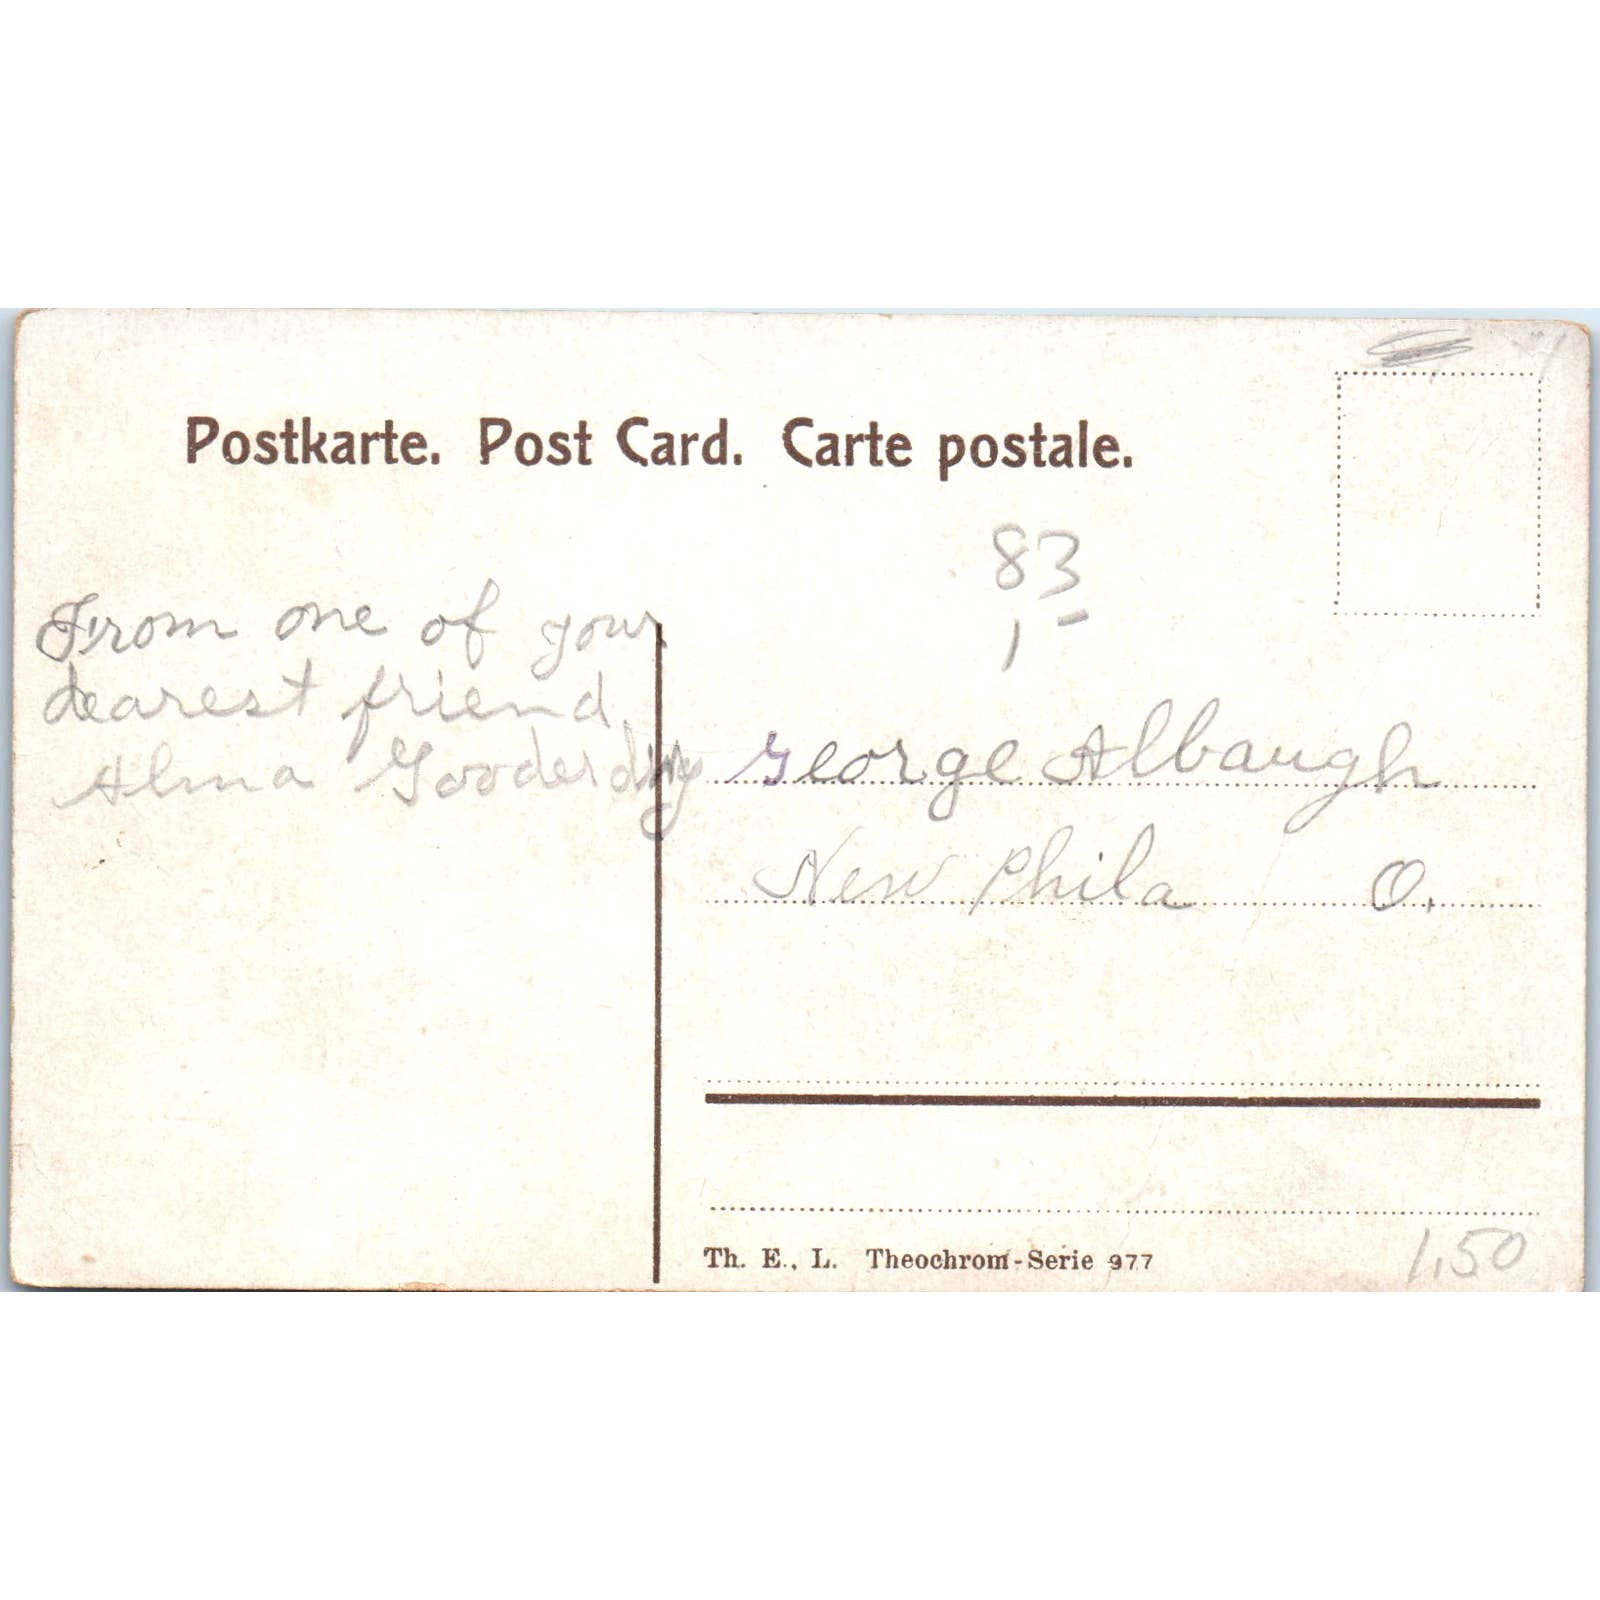 Postkarte. Post Card. Carte postale.
83
From one of your
dearest friend.
Alma
George Albaugh
New Phila O.
Th. E., L. Theochrom-Serie 977
1.50